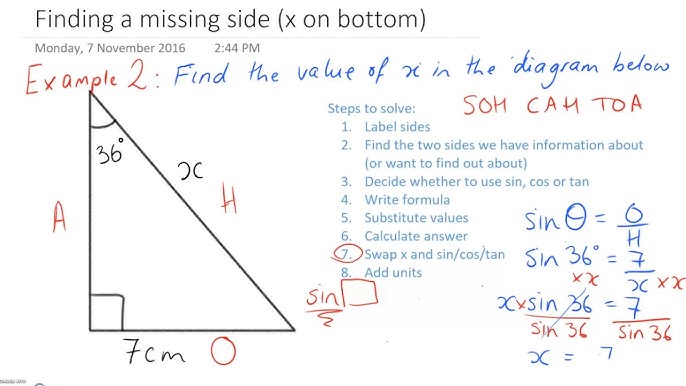 Finding a missing side (x on bottom)
Monday, 7 November 2016 2:44 PM
Example 2: Find the value of x in the diagram below
SOH CAH TOA
Steps to solve:
1. Label sides
2. Find the two sides we have information about
(or want to find out about)
3. Decide whether to use sin, cos or tan
4. Write formula
5. Substitute values
6. Calculate answer
7. Swap x and sin/cos/tan
8. Add units
36°
x
A
H
7cm O
sin
sin θ = O
H
sin 36° = 7
x
×x ×x
x×sin 36 = 7
sin 36 sin 36
x = 7